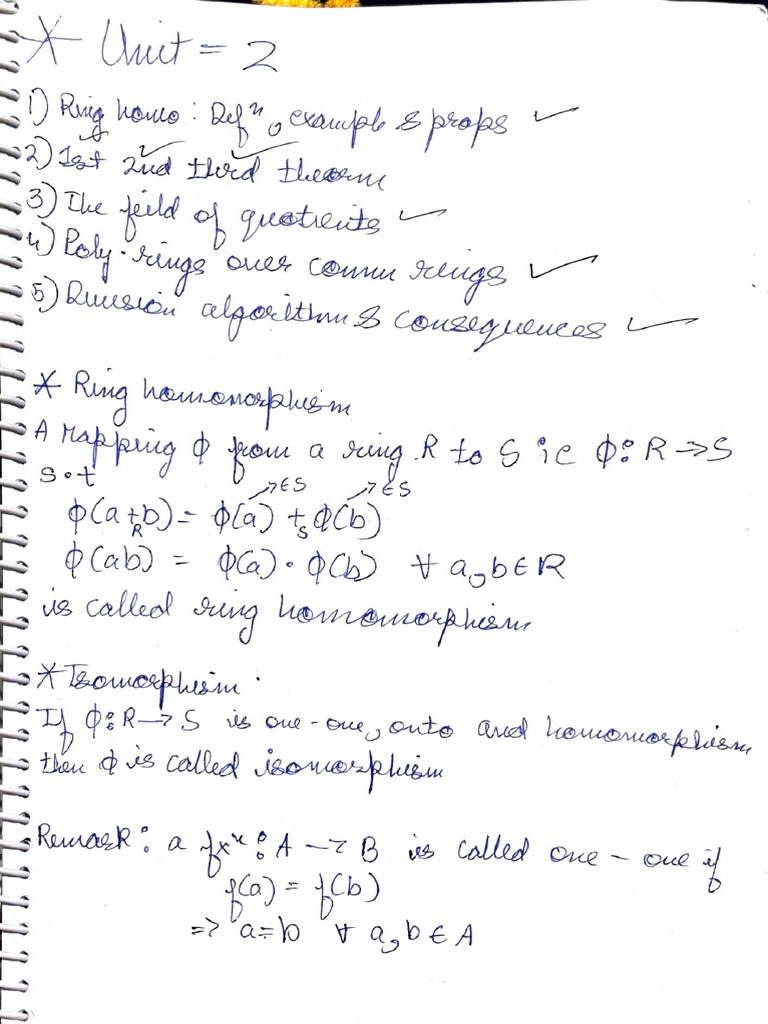 * Unit = 2
1) Ring homo : Defⁿ, example & props ✓
2) 1st 2nd third theorm
3) The feild of quotients ✓
4) Poly. rings over comm rings ✓
5) Division algorithm & consequences ✓
* Ring homomorphism
A mapping ϕ from a ring R to S ie ϕ: R → S
s.t
→∈S →∈S
ϕ(a +_R b) = ϕ(a) +_S ϕ(b)
ϕ(ab) = ϕ(a) · ϕ(b) ∀ a, b ∈ R
is called ring homomorphism
* Isomorphism
If ϕ: R → S is one-one, onto and homomorphism
then ϕ is called isomorphism
Remark : a fxⁿ : A → B is called one - one if
f(a) = f(b)
=> a = b ∀ a, b ∈ A